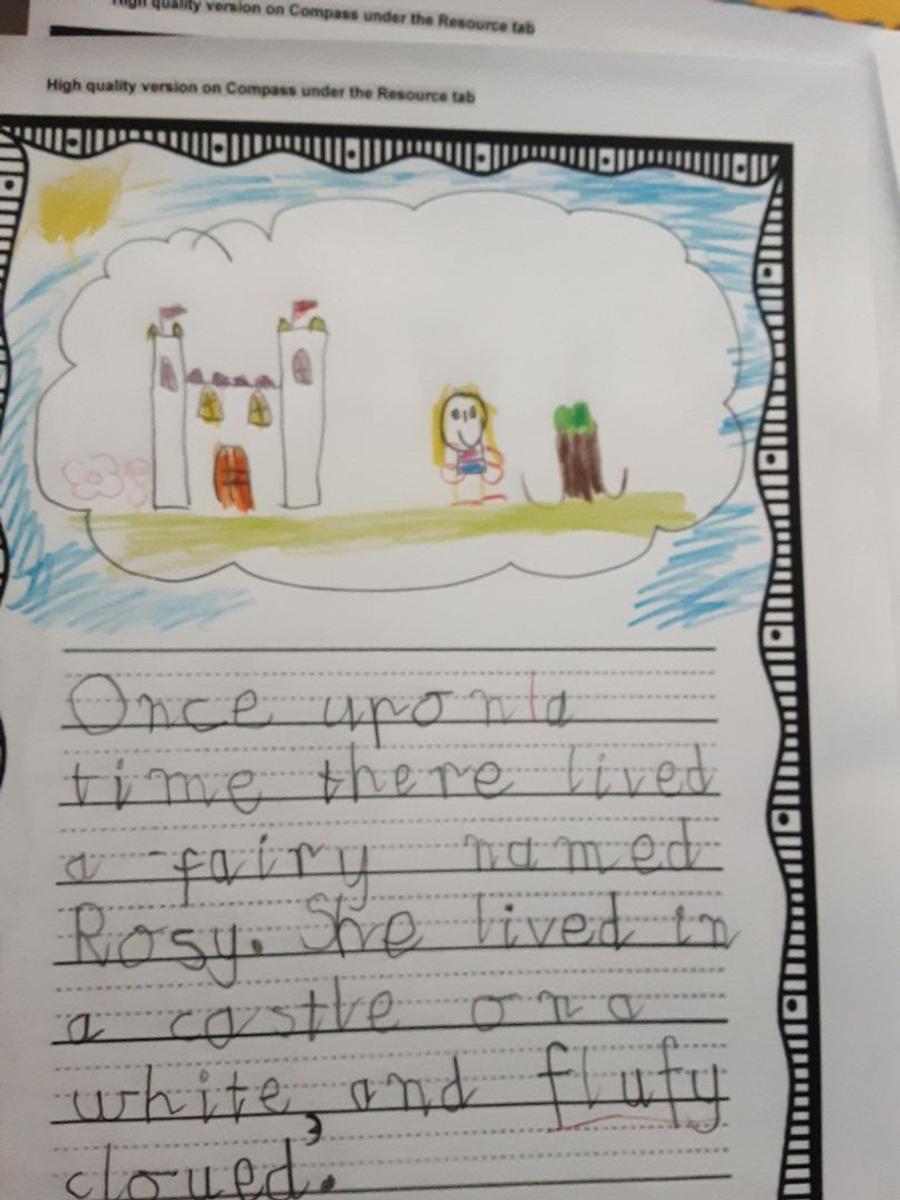 High quality version on Compass under the Resource tab
High quality version on Compass under the Resource tab
Once upon a
time there lived
a fairy named
Rosy. She lived in
a castle on a
white, and flufy
cloued.